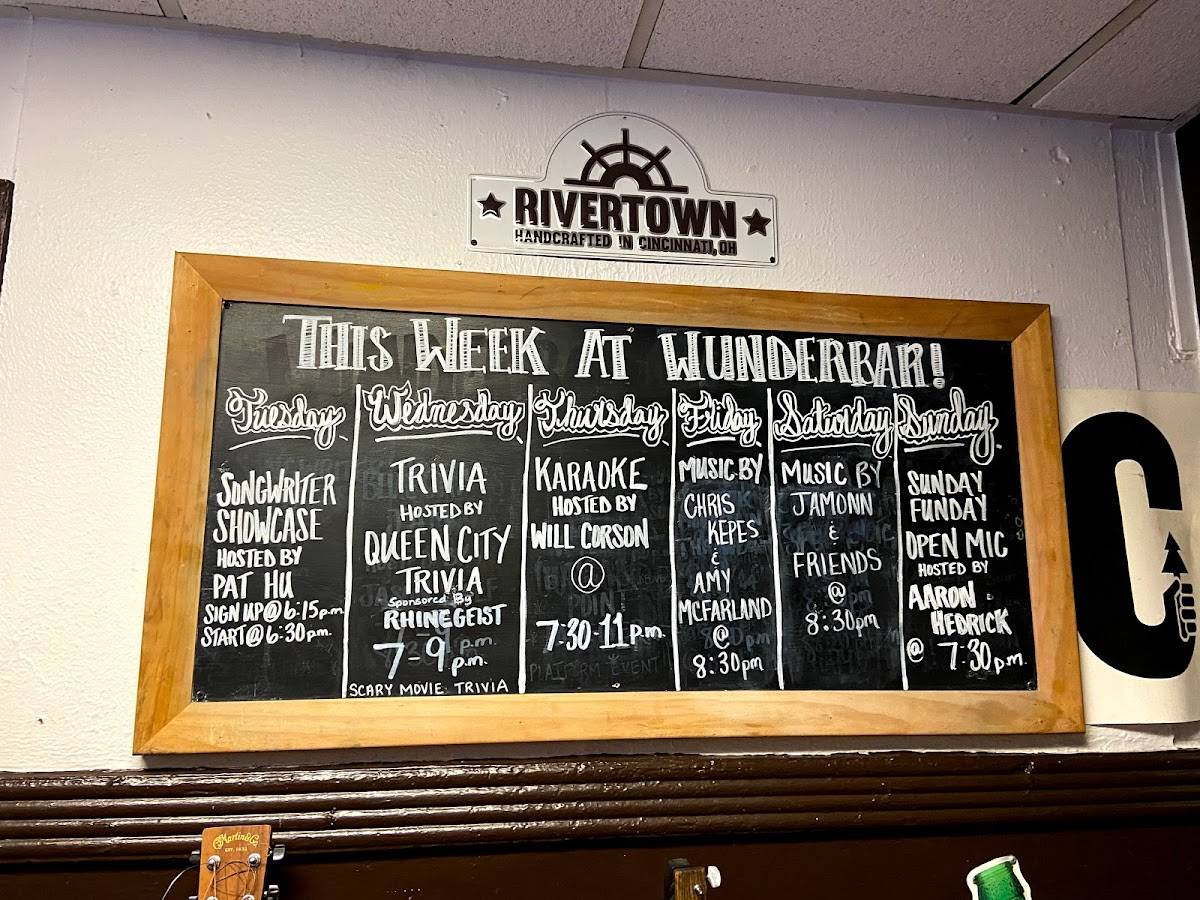 RIVERTOWN
HANDCRAFTED IN CINCINNATI, OH
THIS WEEK AT WUNDERBAR!
Tuesday
SONGWRITER
SHOWCASE
HOSTED BY
PAT HU
SIGN UP @ 6:15p.m.
START @ 6:30pm.
Wednesday
TRIVIA
HOSTED BY
QUEEN CITY
TRIVIA
Sponsored By
RHINEGEIST
7-9 p.m.
SCARY MOVIE TRIVIA
Thursday
KARAOKE
HOSTED BY
WILL CORSON
@
7:30-11 p.m.
Friday
MUSIC BY
CHRIS
KEPES
&
AMY
MCFARLAND
@
8:30pm
Saturday
MUSIC BY
JAMONN
&
FRIENDS
@
8:30pm
Sunday
SUNDAY
FUNDAY
OPEN MIC
HOSTED BY
AARON
HEDRICK
@ 7:30 p.m.
C
Martin & Co
EST. 1833